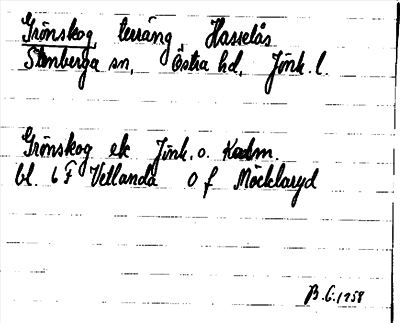 Grönskog, terräng Hasselås
Stenberga sn, Östra hd, Jönk. l.
Grönskog ek Jönk. o. Kadm.
bl. 6 F Vetlanda O f Möcklaryd
B.G. 1958